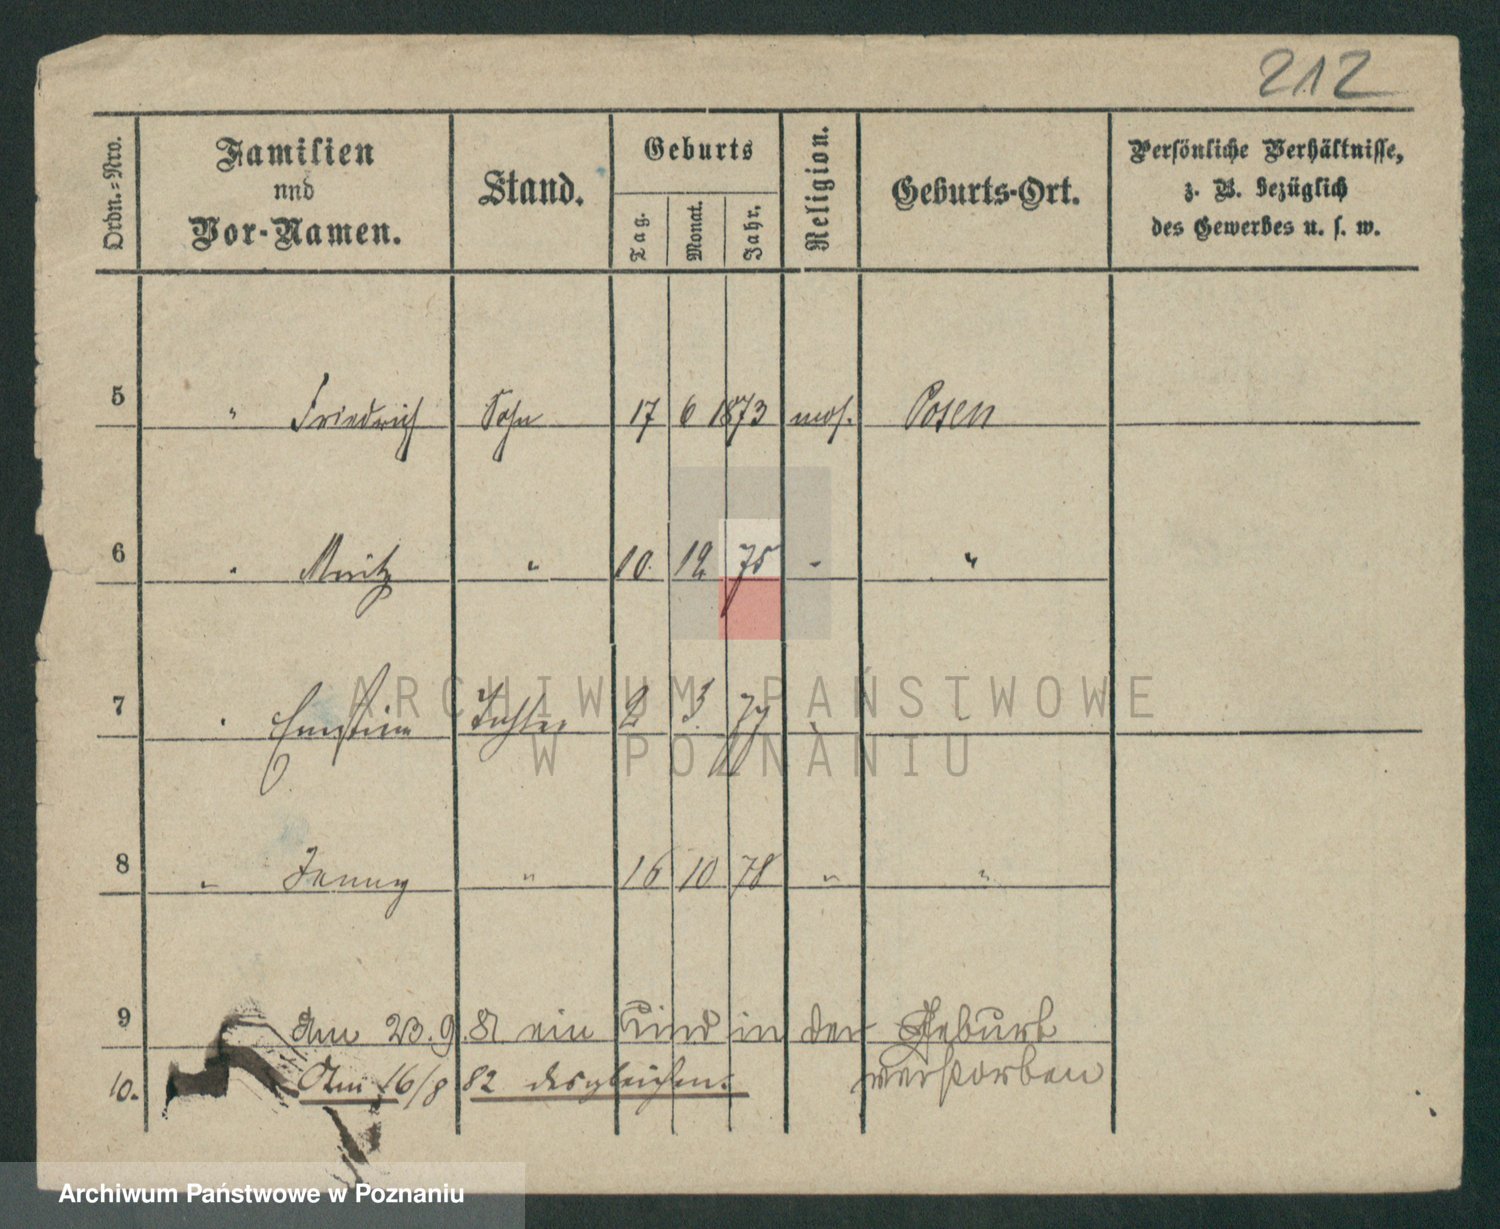 212
Ordn.=Nro.
Familien
und
Vor-Namen.
Stand.
Geburts
Tag.
Monat.
Jahr.
Religion.
Geburts-Ort.
Persönliche Verhältnisse,
z. B. bezüglich
des Gewerbes u. s. w.
5 " Friedrich Sohn 17 6 1873 mos. Posen
6 " Moritz " 10. 12 75 " "
7 " Ernstine Tochter 2 3. 77
8 " Jenny " 16 10 78 " "
9 Am 23.9.81 ein Kind in der Geburt
verstorben
10. Am 16/8 82 desgleichen.
ARCHIWUM PAŃSTWOWE
W POZNANIU
Archiwum Państwowe w Poznaniu